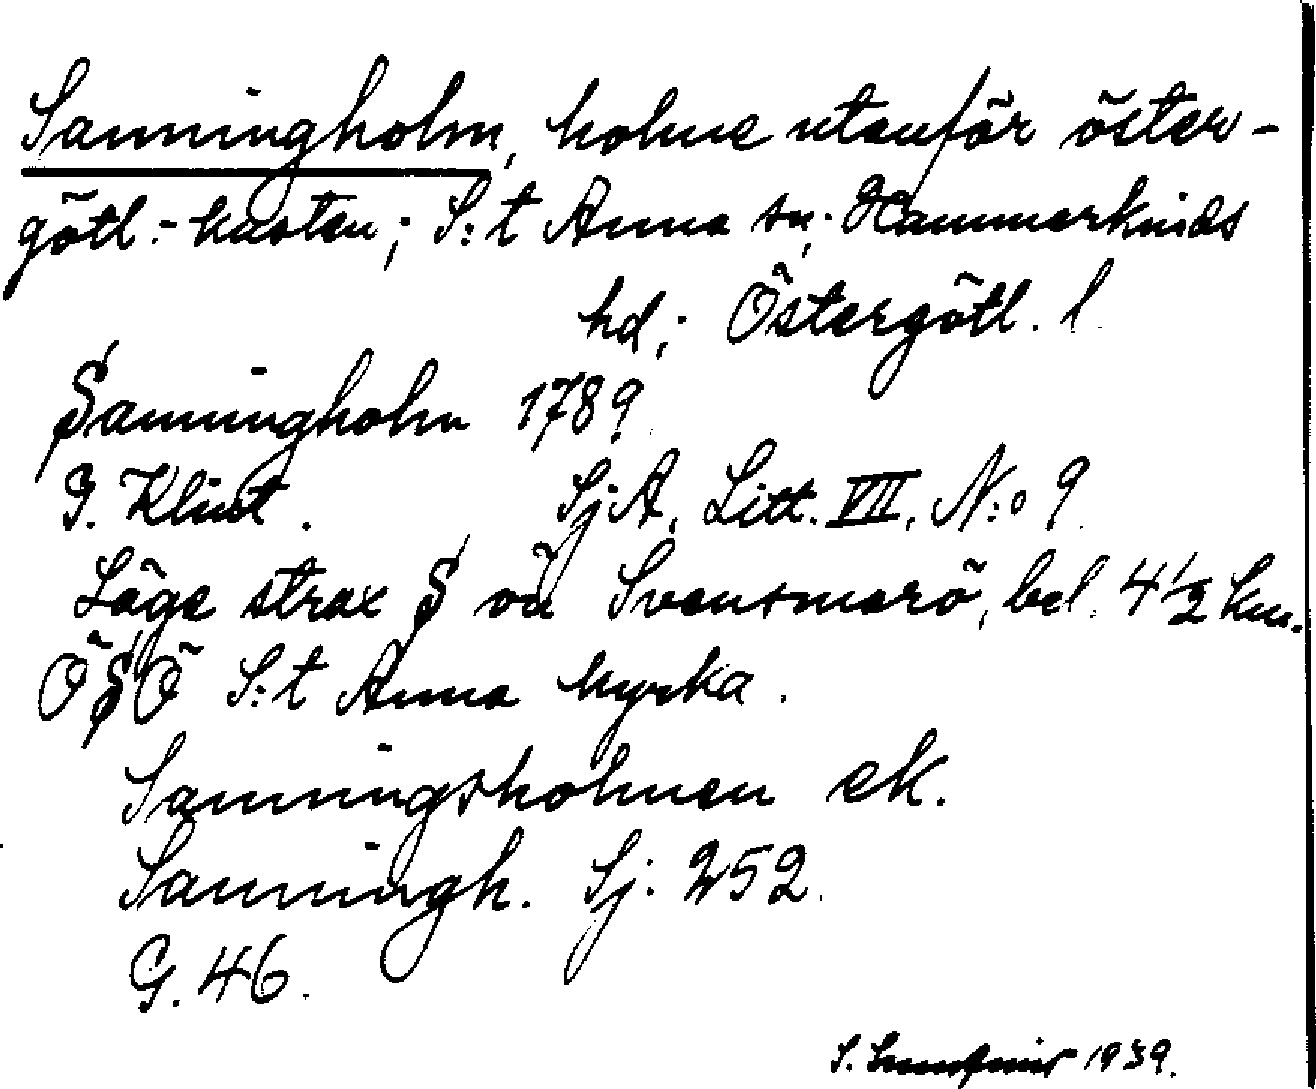 Sanningholm, holme utanför öster-
götl.-kusten; S:t Anna sn; Hammarkinds
hd; Östergötl. l.
Sanningholm 1789.
G. Klint. SjA, Litt. VII, N:o 9.
Läge strax S om Svensmarö, bel. 4 1/2 km.
ÖSÖ S:t Anna kyrka.
Sanningsholmen ek.
Sanningh. Sj. 252.
G. 46.
S. 1939.